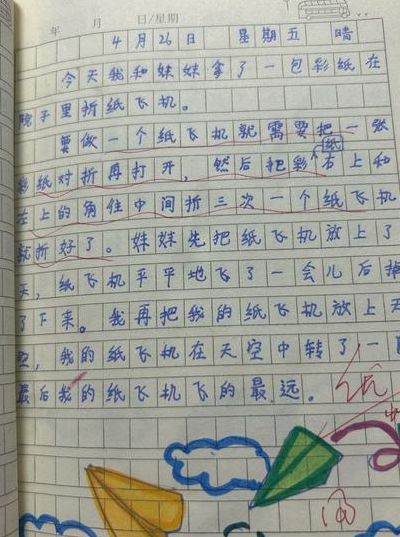 年 月 日/星期
4月26日 星期五 晴
今天我和妹妹拿了一包彩纸在
院子里折纸飞机。
要做一个纸飞机就需要把一张
彩纸对折再打开，然后把彩纸右上和
左上的角往中间折三次一个纸飞机
就折好了。妹妹先把纸飞机放上了
天，纸飞机平平地飞了一会儿后掉
了下来。我再把我的纸飞机放上天
空，我的纸飞机在天空中转了一
最后我的纸飞机飞的最远。
优